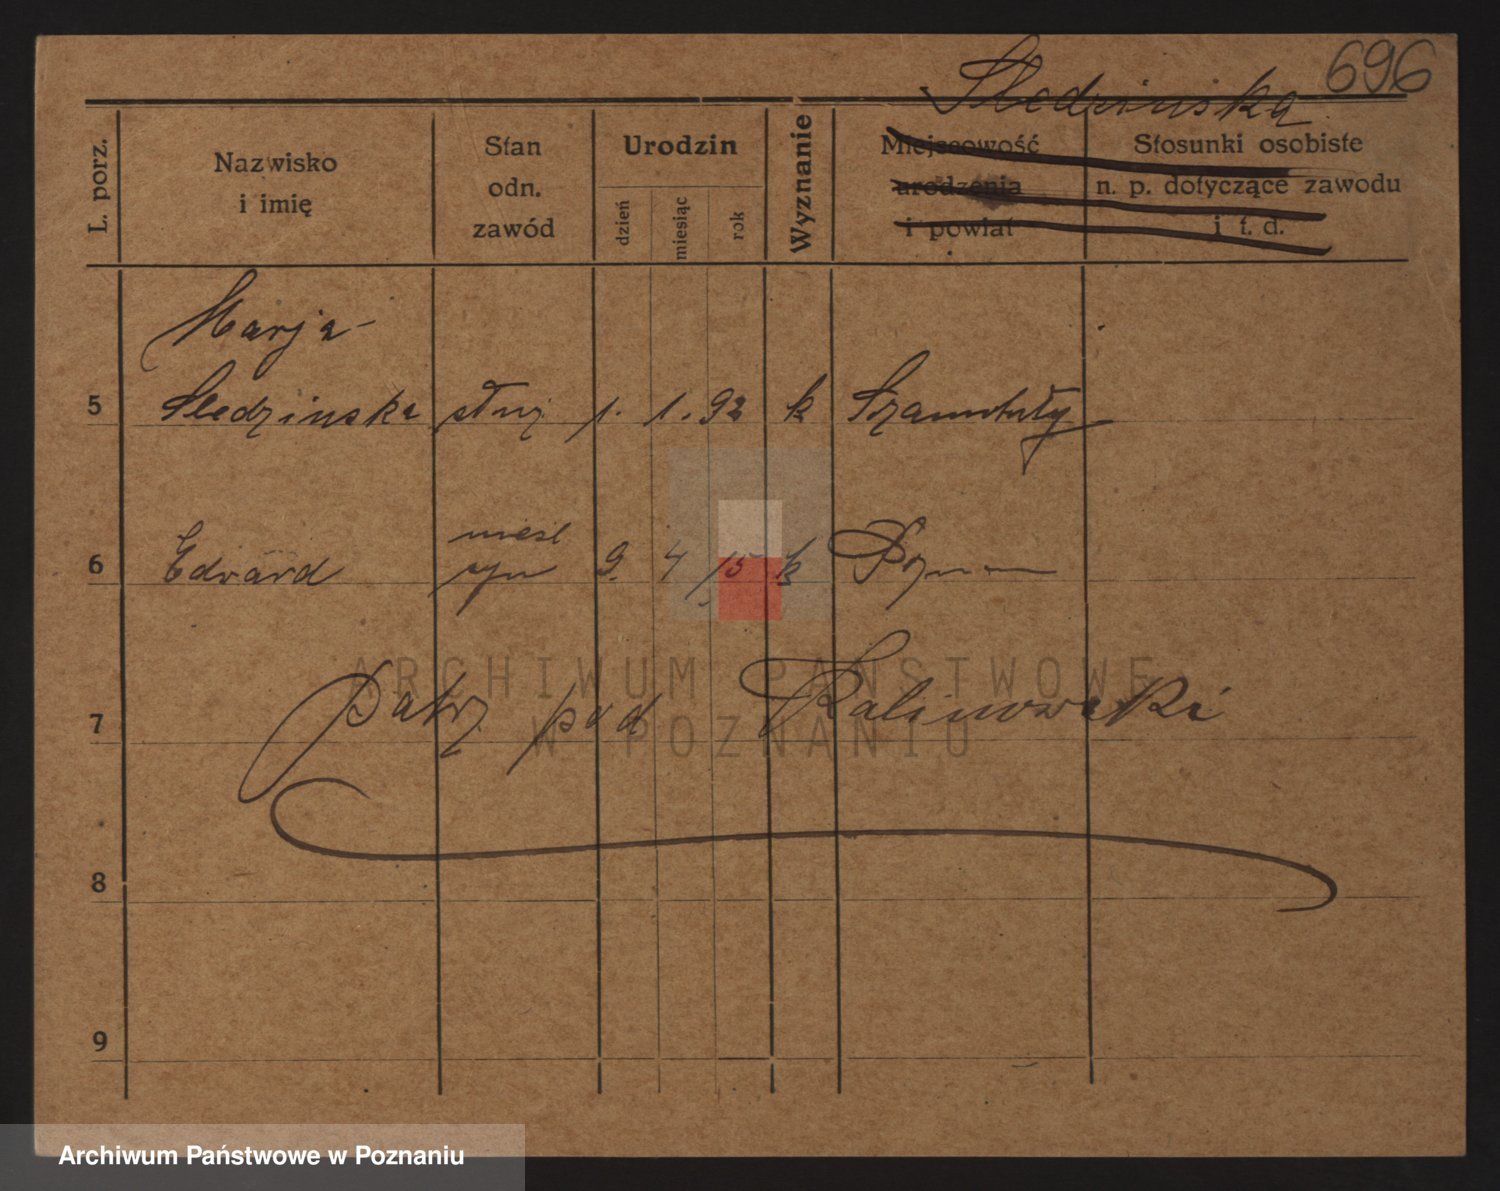 696
Sledzinska
L. porz.
Nazwisko
i imię
Stan
odn.
zawód
Urodzin
dzień
miesiąc
rok
Wyznanie
Miejscowość
urodzenia
i powiat
Stosunki osobiste
n. p. dotyczące zawodu
i t. d.
Marja
5 Sledzinska służ 1. 1. 92 k Szamotuły
nieśl
6 Edward syn 9. 4 15 k Poznan
7 Patrz pod Kalinowski
8
9
ARCHIWUM PAŃSTWOWE
W POZNANIU
Archiwum Państwowe w Poznaniu